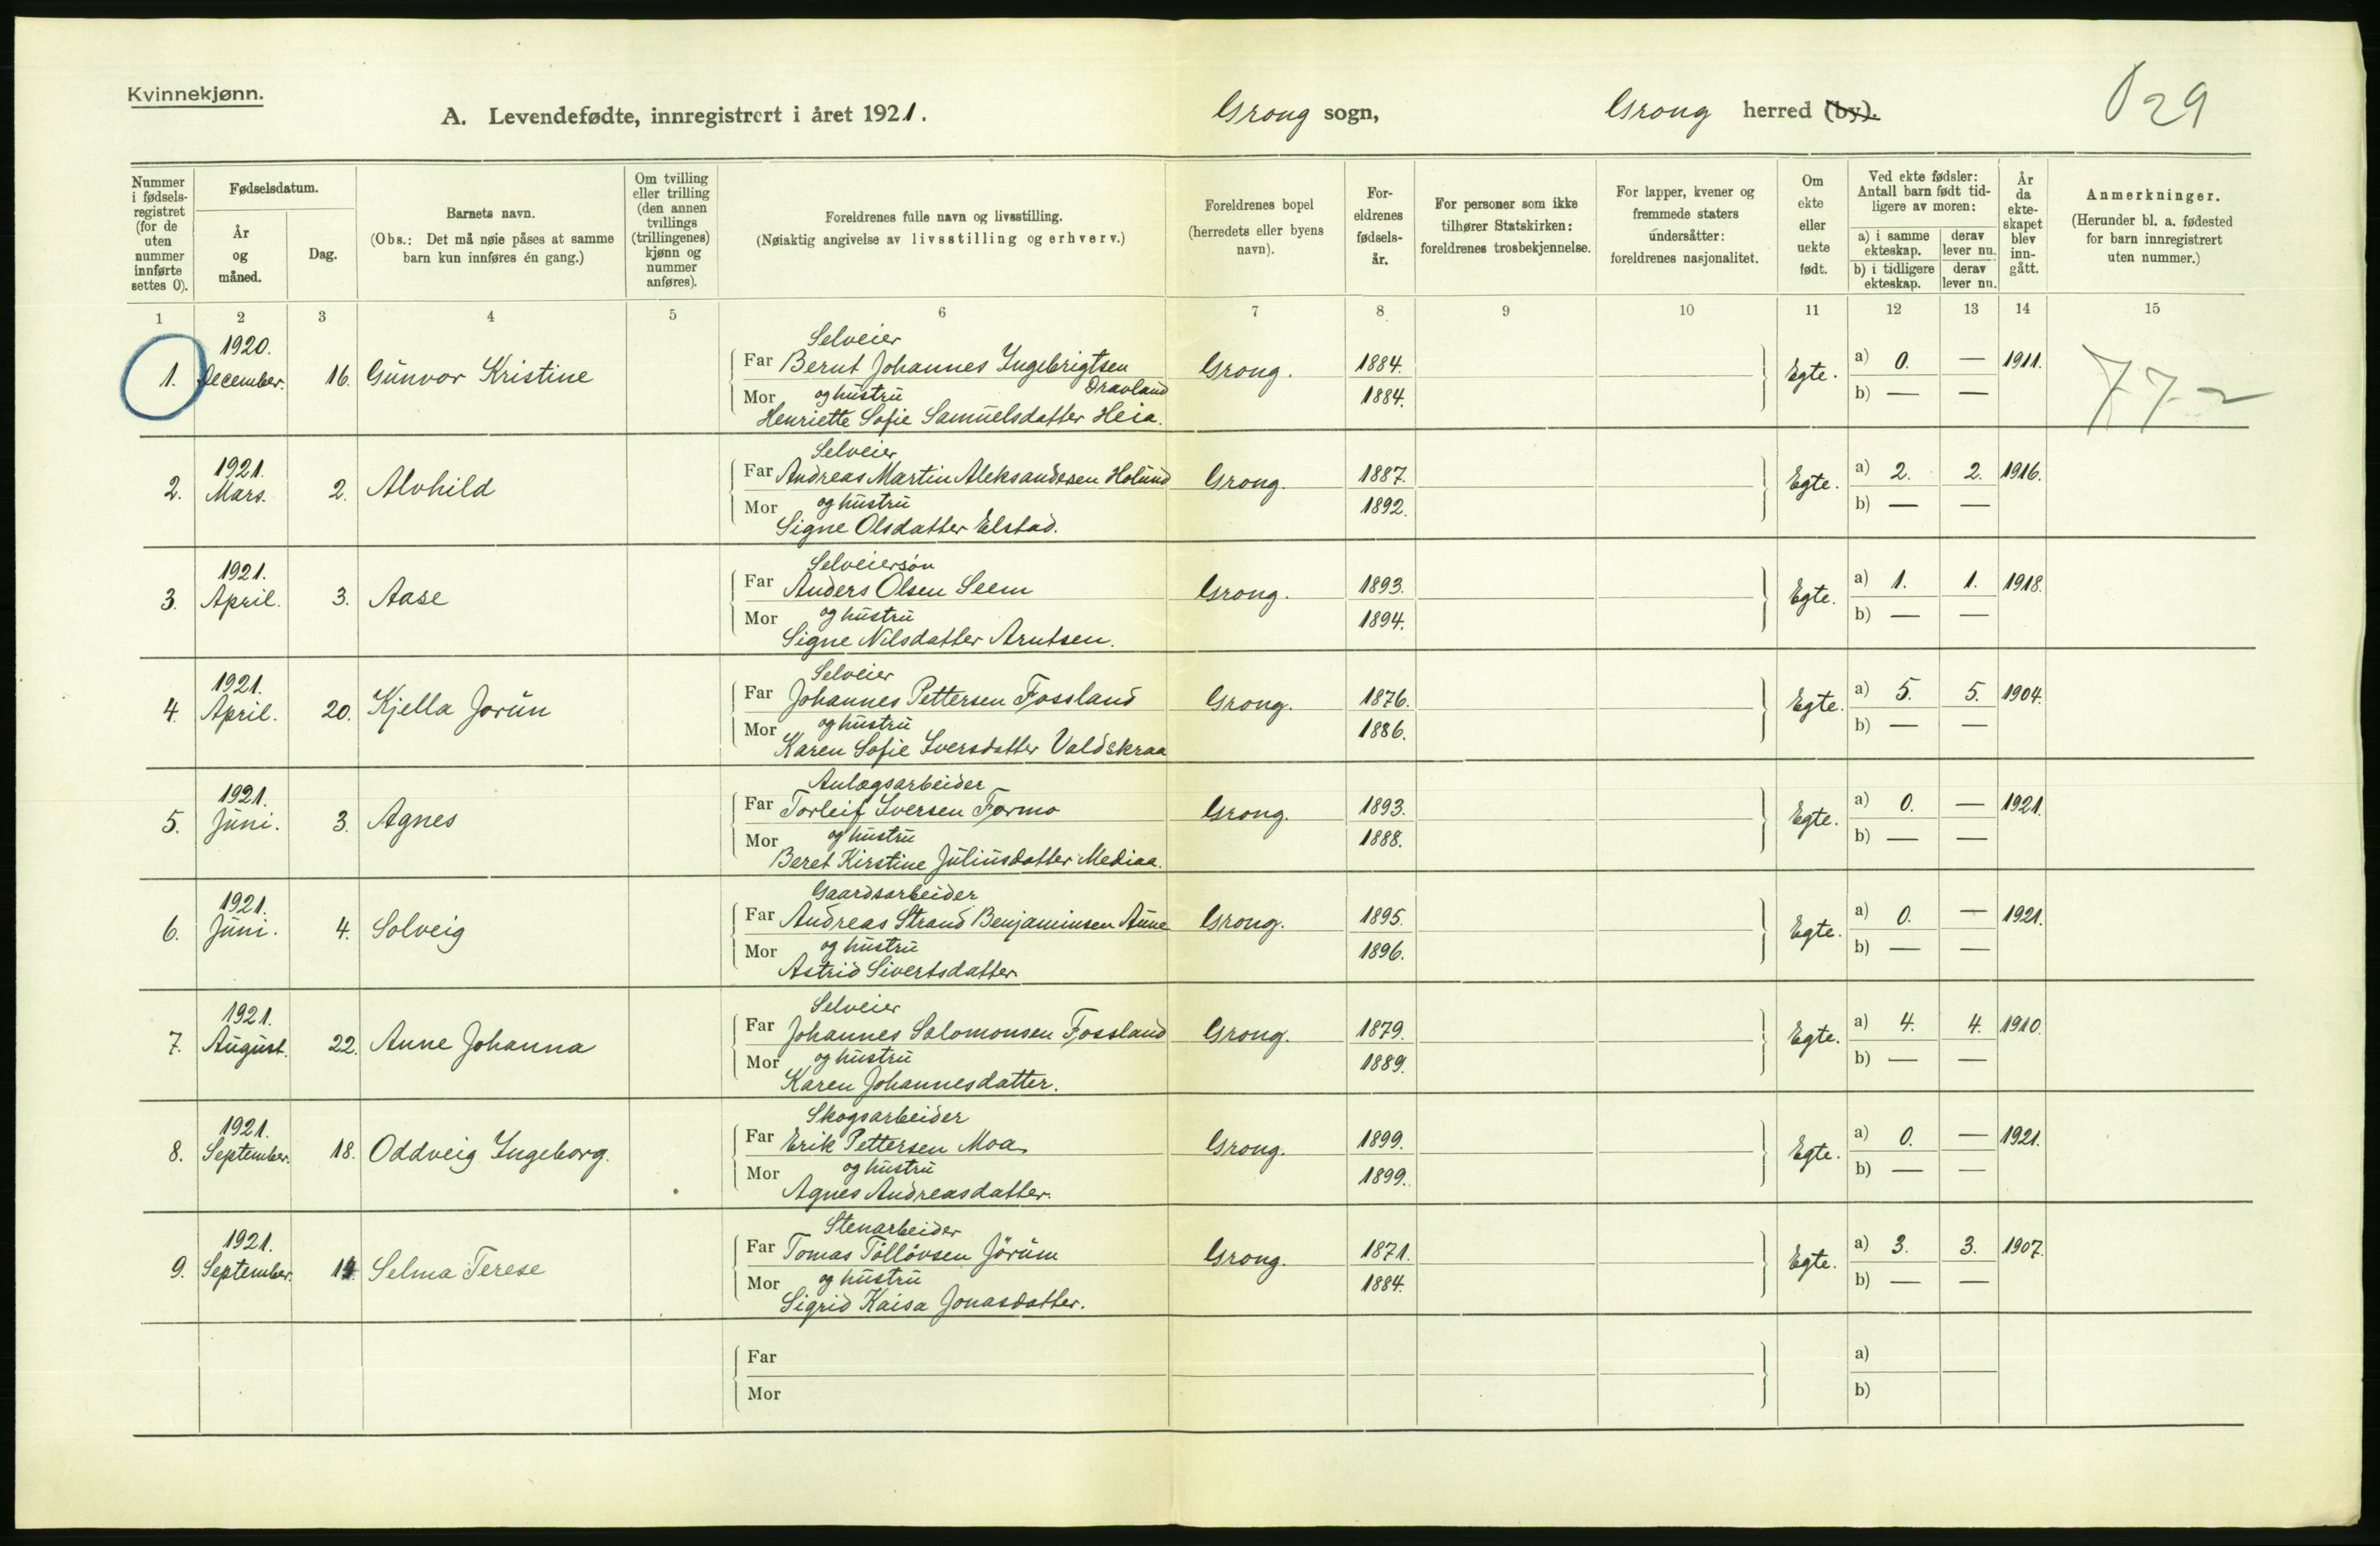 Kvinnekjønn.
A. Levendefødte, innregistrert i året 1921.
Grong sogn,
Grong herred (by).
29
Nummer i fødsels-registret (for de uten nummer innførte settes 0).
Fødselsdatum.
År og måned.
Dag.
Barnets navn.
(Obs.: Det må nøie påses at samme barn kun innføres én gang.)
Om tvilling eller trilling (den annen tvillings (trillingenes) kjønn og nummer anføres).
Foreldrenes fulle navn og livsstilling.
(Nøiaktig angivelse av livsstilling og erhverv.)
Foreldrenes bopel (herredets eller byens navn).
For-eldrenes fødsels-år.
For personer som ikke tilhører Statskirken: foreldrenes trosbekjennelse.
For lapper, kvener og fremmede staters undersåtter: foreldrenes nasjonalitet.
Om ekte eller uekte født.
Ved ekte fødsler: Antall barn født tid-ligere av moren:
a) i samme ekteskap.
derav lever nu.
b) i tidligere ekteskap.
derav lever nu.
År da ekte-skapet blev inn-gått.
Anmerkninger.
(Herunder bl. a. fødested for barn innregistrert uten nummer.)
1 2 3 4 5 6 7 8 9 10 11 12 13 14 15
1920.
1. December. 16. Gunvor Kristine
Selveier
Far Bernt Johannes Ingebrigtsen Dravland
Mor og hustru
Henriette Sofie Samuelsdatter Heia.
Grong. 1884. 1884. Egte. a) 0. — 1911.
b) — —
77-2
1921.
2. Mars. 2. Alvhild
Selveier
Far Andreas Martin Aleksandersen Holund
Mor og hustru
Signe Olsdatter Elstad.
Grong. 1887. 1892. Egte. a) 2. 2. 1916.
b) — —
1921.
3. April. 3. Aase
Selveiersøn
Far Anders Olsen Seem
Mor og hustru
Signe Nilsdatter Arntsen.
Grong. 1893. 1894. Egte. a) 1. 1. 1918.
b) — —
1921.
4. April. 20. Kjella Jorun
Selveier
Far Johannes Pettersen Fossland
Mor og hustru
Karen Sofie Iversdatter Valdskraa
Grong. 1876. 1886. Egte. a) 5. 5. 1904.
b) — —
1921.
5. Juni. 3. Agnes
Anlægsarbeider
Far Torleif Iversen Formo
Mor og hustru
Beret Kirstine Juliusdatter Mediaa.
Grong. 1893. 1888. Egte. a) 0. — 1921.
b) — —
1921.
6. Juni. 4. Solveig
Gaardsarbeider
Far Andreas Strand Benjaminsen Aune
Mor og hustru
Astrid Sivertsdatter
Grong. 1895. 1896. Egte. a) 0. — 1921.
b) — —
1921.
7. August. 22. Anne Johanna
Selveier
Far Johannes Salomonsen Fossland
Mor og hustru
Karen Johannesdatter.
Grong. 1879. 1889. Egte. a) 4. 4. 1910.
b) — —
1921.
8. September. 18. Oddveig Ingeborg.
Skogsarbeider
Far Erik Pettersen Moa
Mor og hustru
Agnes Andreasdatter.
Grong. 1899. 1899. Egte. a) 0. — 1921.
b) — —
1921.
9. September. Selma Terese
Stenarbeider
Far Tomas Tølløvsen Jørüm
Mor og hustru
Sigrid Kaisa Jonasdatter.
Grong. 1871. 1884. Egte. a) 3. 3. 1907.
b) — —
Far
Mor
a)
b)